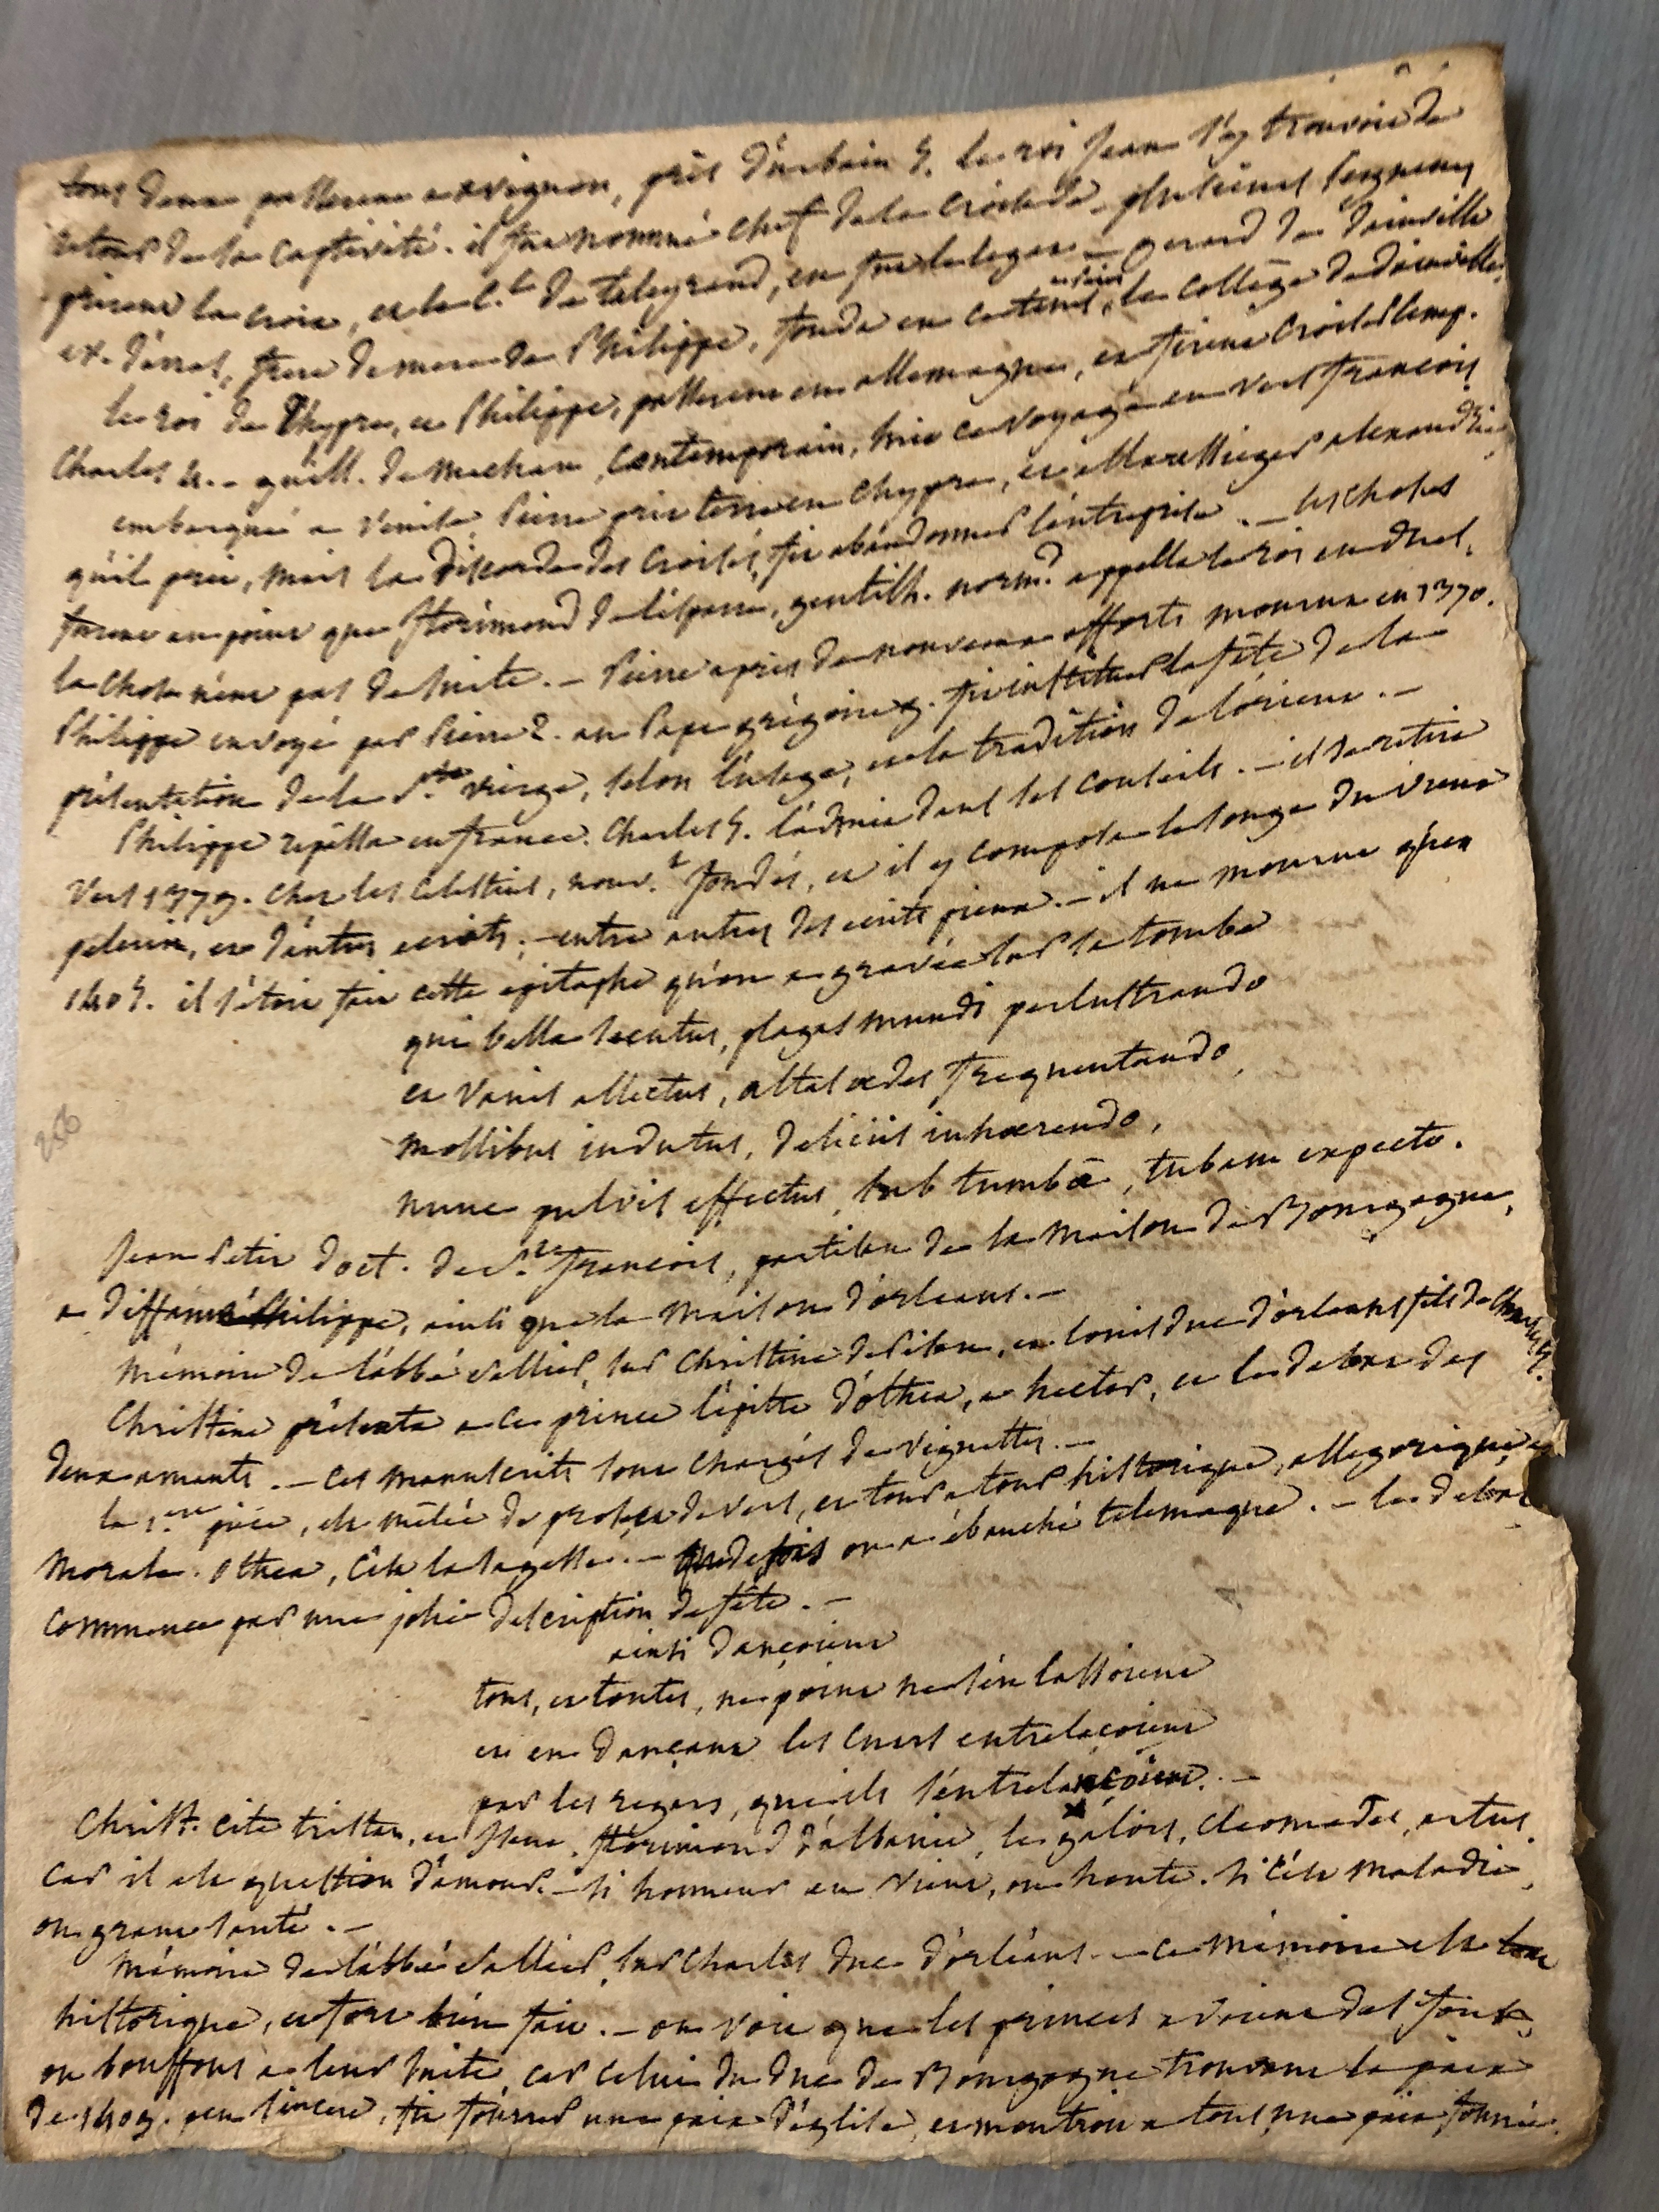 tous deux passerent a avignon, près d'urbain 5. le roi Jean s'y trouvoit de
retour de la captivité. il fut nommé chef de la croisade. plusieurs seigneurs
prirent la croix, et le C.l de taleyrand, en fut le legat. – Gerard de dainville
ev. d'arras, frere de mere de Philippe, fonda en ce tems, a paris le college de dainville.
le roi de Chypre, et Philippe, passerent en allemagne, et firent croiser l'emp.
Charles 4. – guill. de machau, contemporain, mit ce voyage en vers françois
embarqué a Venise Pierre prit terre en chypre, et alla assieger alexandrie,
qu'il prit, mais la discorde des croisés, fit abandonner l'entreprise. – les choses
furent au point que florimond de lesparre, gentilh. norm.d appella le roi en duel,
la chose n'eut pas de suite. – Pierre après de nouveaux efforts mourut en 1370.
Philippe envoyé par Pierre 2. au Pape grégoire XI. fit instituer la fête de la
présentation de la S.te vierge, selon l'usage, et la tradition de l'orient. –
Philippe repassa en france. Charles 5. l'admit dans ses conseils. – il se retira
vers 1379. chez les celestins, nouv.t fondés, et il y composa le songe du vieux
pelerin, et d'autres ecrits, – entre autres des ecrits pieux. – il ne mourut qu'en
1405. il s'étoit fait cette epitaphe qu'on a gravée sur sa tombe
qui bella secutus, plagas mundi perlustrando
et vanis allectus, altas ædes frequentando,
mollibus indutus, deliciis inhærendo,
nunc pulvis effectus, sub tumbâ, tubam expecto.
Jean Petit doct. de S.t françois, partisan de la maison de Bourgogne,
a diffamé Philippe, ainsi que la maison d'orleans. –
mémoire de l'abbé sallier, sur Christine de Pisan, et louis duc d'orleans fils de Charles 5.
Christine présenta a ce prince l'epitre d'othea, a hector, et le debat des
deux amants. – ces manuscrits sont chargés de vignettes. –
la 1.ere piece, est mêlée de prose, et de vers, et tour a tour historique, allegorique, et
morale. othea, c'est la sagesse. – que de fois on a ébauché telemaque. – le debat
commence par une jolie description de fête. –
ainsi dançoient
tous, et toutes, ne point ne s'en lassoient
et en dançant les cuers entrelaçoient
par les regars, que ils s'entrelançoient. –
Christ. cite tristan, et florimond d'albanie, le galois, cleomades, artus
car il est question d'amour. – si honneur en vient, ou honte. si c'est maladie,
ou grant santé. –
mémoire de l'abbé sallier, sur Charles duc d'orléans. – ce mémoire est tout
historique, et fort bien fait. – on voit que les princes avoient des fous,
ou bouffons a leur suite, car celui du duc de Bourgogne trouvant la paix
de 1409. peu sincere, fit fourrer une paix d'eglise, et montroit a tous, une paix fourrée.
256